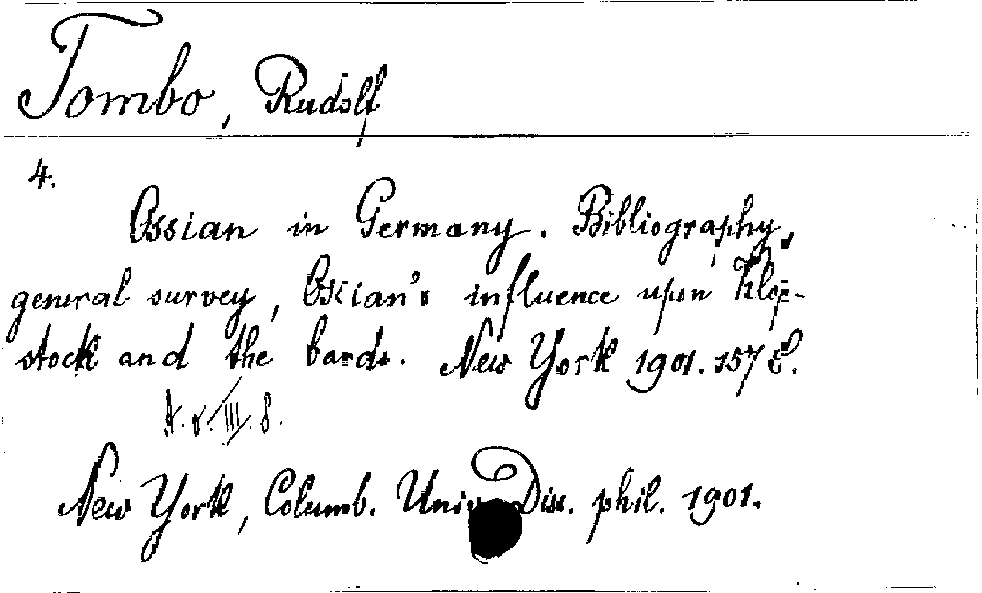 Tombo, Rudolf
4.
Ossian in Germany. Bibliography,
general survey, Ossian's influence upon Klop-
stock and the bards. New York 1901. 157 S.
New York, Columb. Univ. Diss. phil. 1901.